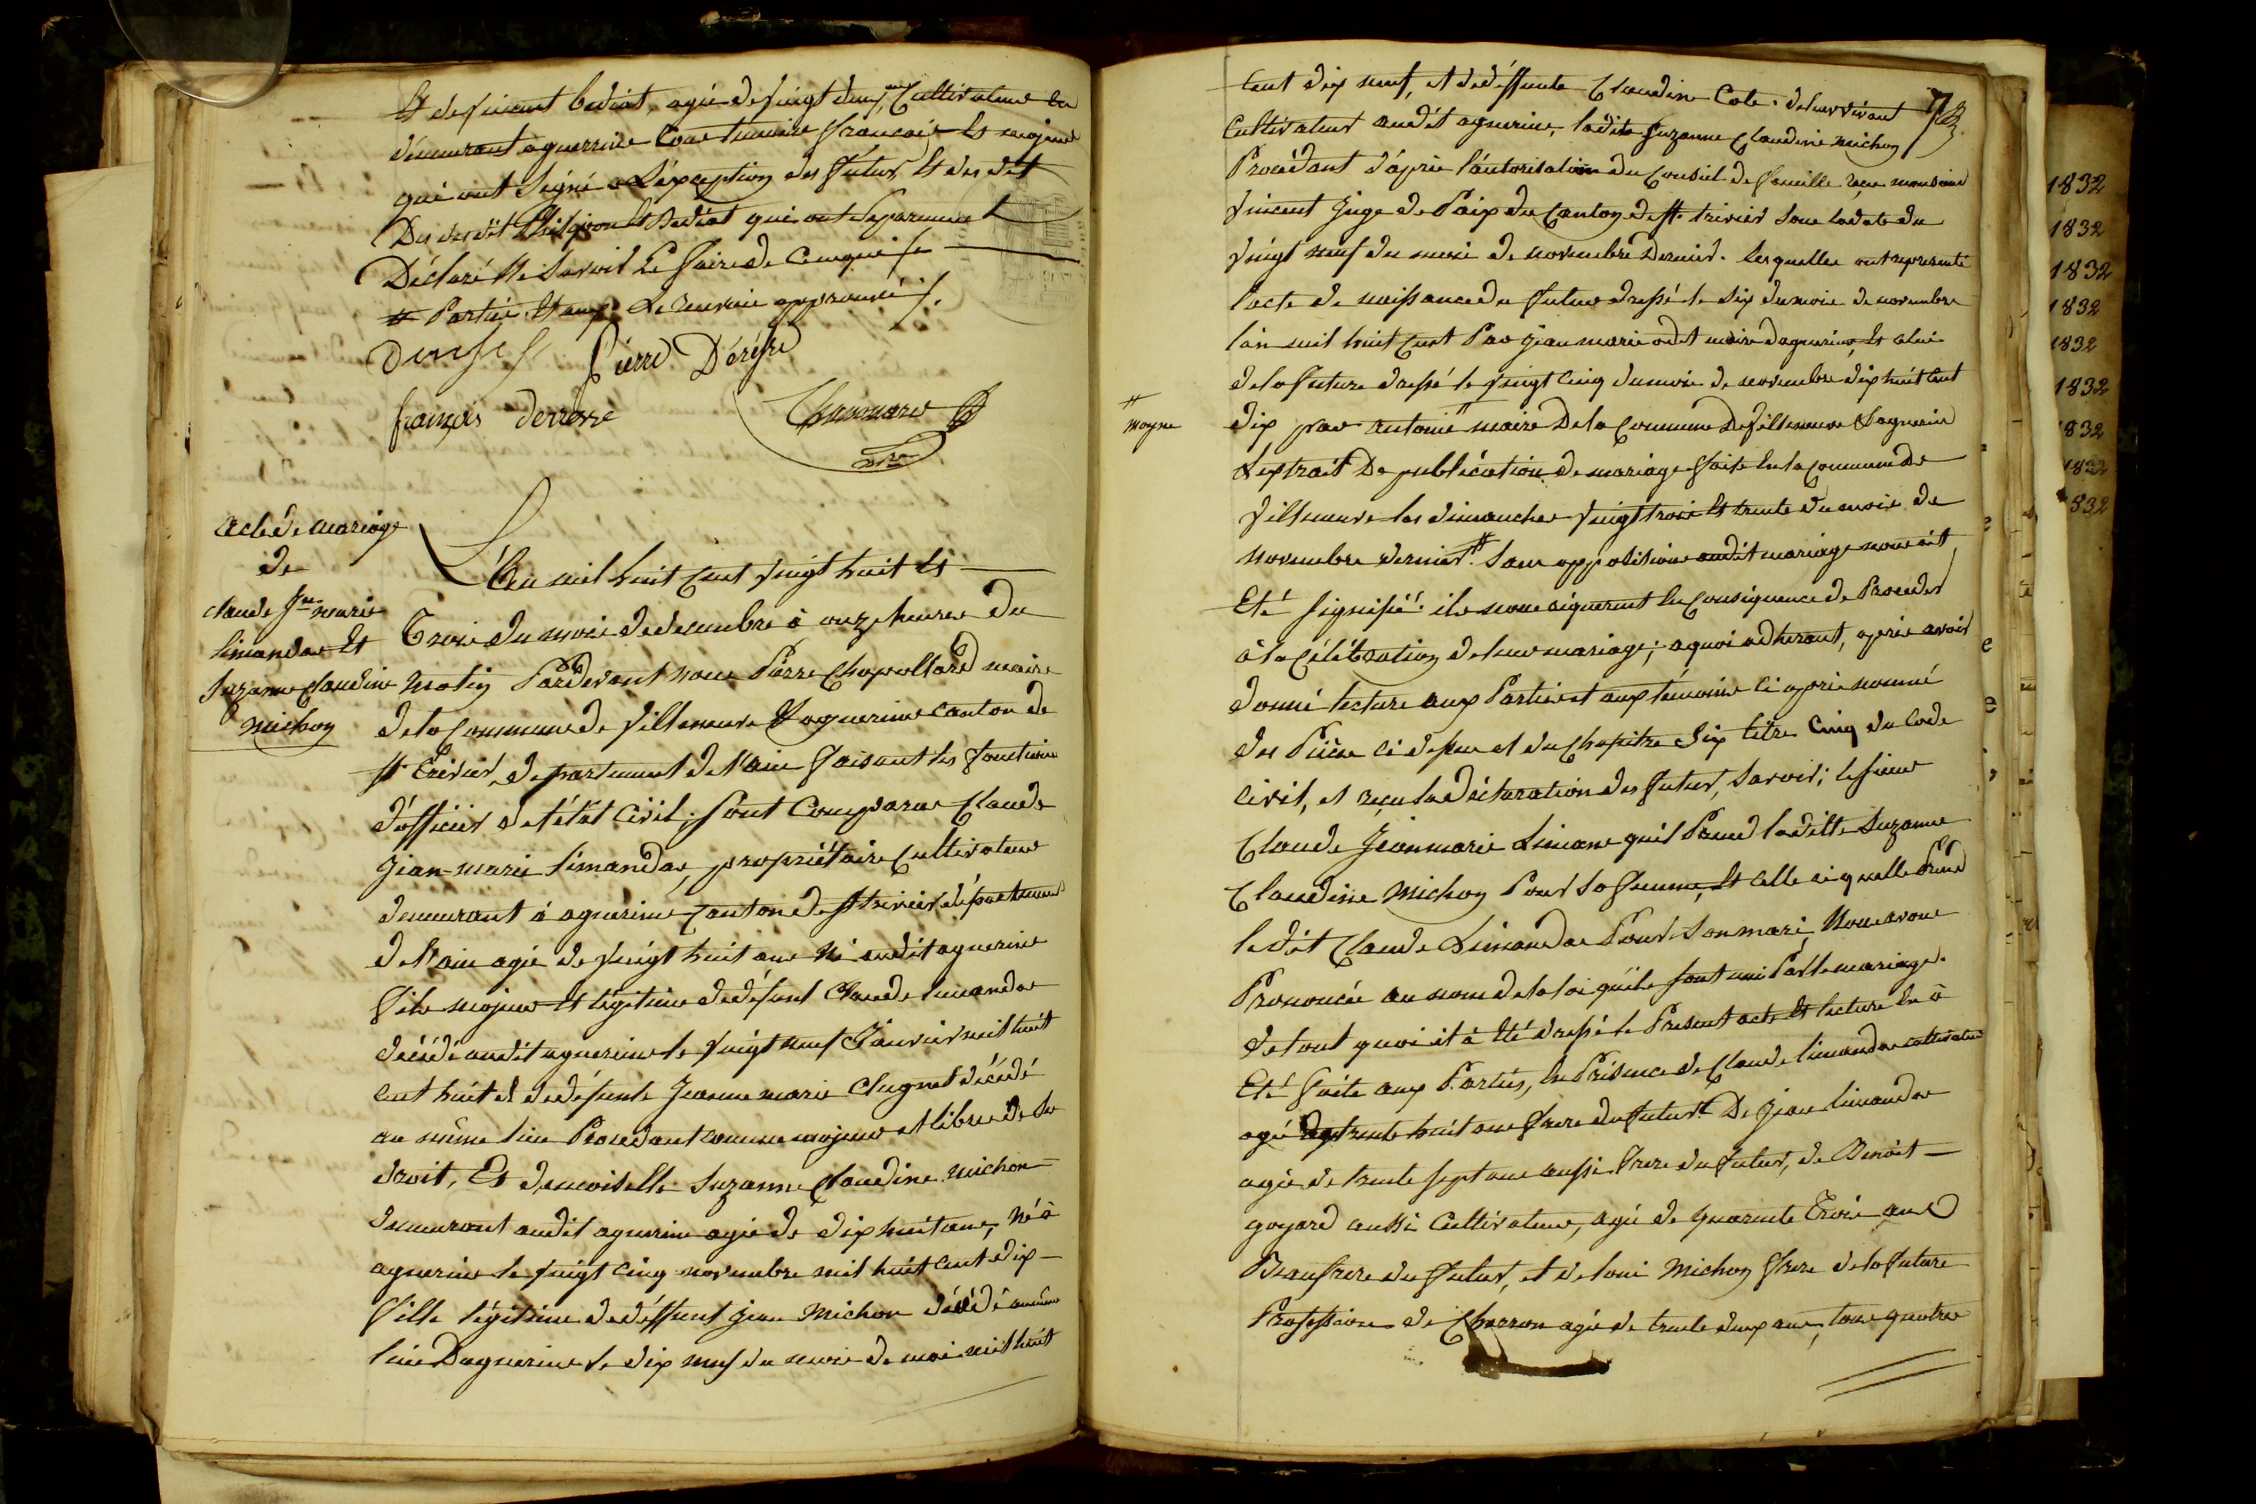 Et de vincent bediat, agée de vingt deux ans Cultivateur en
demeurant agnereins tous temoins français Et majeurs
qui ont Signé a L'exception des futurs Et des dit
Déclaré Ne Savoir Le faire de Ce enquis
Parties Et aux Le renvoie approuvé
Pierre Deresse
françois derresse
acte de mariage
de
claude Jn marie
limandas Et
Suzanne claudine
michon
L'an mil huit Cent vingt huit Et
Trois du mois de decembre à onze heures du
Matin Pardevant nous Pierre Chapollard maire
de la Commune de Villeneuve Et agnereins canton de
St Trivier, departement de l'ain faisant les fonctions
d'officier de l'état Civil, Sont Comparus Claude
Jean-marie limandas, propriétaire Cultivateur
demeurant à agnereins Canton de St trivier département
de l'ain agée de vingt huit ans Né audit agnereins
fils majeur Et légitime de défunt Claude limandas
décédé audit agnereins le vingt neuf Janvier mil huit
cent huit et de défunte Jeanne marie Clugnet décédé
au même lieu Procedant comme majeur et libre de Se
droit, Et demoiselle Suzanne Claudine michon
demeurant audit agnereins agée de dix huit ans, Né à
agnereins le vingt cinq novembre mil huit cent dix
fille légitime de déffunt jean Michon décédé au même
lieu D'agnereins le dix neuf du mois de mai mil huit
78
Cent dix neuf, et de déffunte Claudine Cote. de leur vivant
Cultivateur audit agnereins, ladite Suzanne Claudine michon
Procédant d'après l'autorisation du Conseil de famille reçu monsieur
vincent Juge de Paix du Canton de St. trivier Sous la date du
vingt neuf du mois de novembre Dernier. lesquelles ont representé
l'acte de naissance du futur dressé le dix du mois de novembre
l'an mil huit Cent Par Jean marie odet maire dagnereins, Et celui
de la future dressé le vingt Cinq du mois de novembre dix huit cent
# moyne
dix par antoine # maire De la Commune De Villeneuve Dagnereins
L'extrait De publication de mariage faite En la Commune De
Villeneuve les dimanches vingt trois Et trente du mois de
novembre dernier # Sans opposition audit mariage nous ait
Eté Signifié. ils nous requerent En Consequence de Proceder
à la Célébration de leur mariage; a quoi adherant, après avoir
donné lecture aux Parties et aux témoins ci après nommé
des Pièces ci dessus et du Chapitre Six titre Cinq du Code
Civil, et reçu la déclaration des futurs, Savoir; le sieur
Claude Jean marie Limane qu'il Prend la ditte Suzanne
Claudine Michon Pour Sa femme, Et celle ci qu'elle Prend
le dit Claude Limandas Pour Son mari, Nous avons
Prononcée au nom de la loi qu'ils Sont uni Par le mariage.
de tout quoi il à Eté dressé le Present acte Et lecture En à
Eté faite aux Parties, En Présence de Claude limandas cultivateur
agé de trente huit ans frere du futur. De Jean limandas
agée de trente Sept ans aussi frere du futur, de Benoit
goyard aussi Cultivateur, agée de quarente Trois ans
Beaufrere du futur, et de loui Michon frere de la future
Profession de Charron agée de trente deux ans, tous quatres
1832
1832
1832
1832
1832
1832
832
1832
832